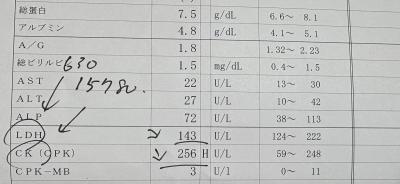 総蛋白 7.5 g/dL 6.6～ 8.1
アルブミン 4.8 g/dL 4.1～ 5.1
A/G 1.8 1.32～ 2.23
総ビリルビ 630 1.5 mg/dL 0.4～ 1.5
AST 1578u. 22 U/L 13～ 30
ALT 27 U/L 10～ 42
ALP 72 U/L 38～ 113
LDH 143 U/L 124～ 222
CK (CPK) 256 H U/L 59～ 248
CPK-MB 3 U/l 0～ 11